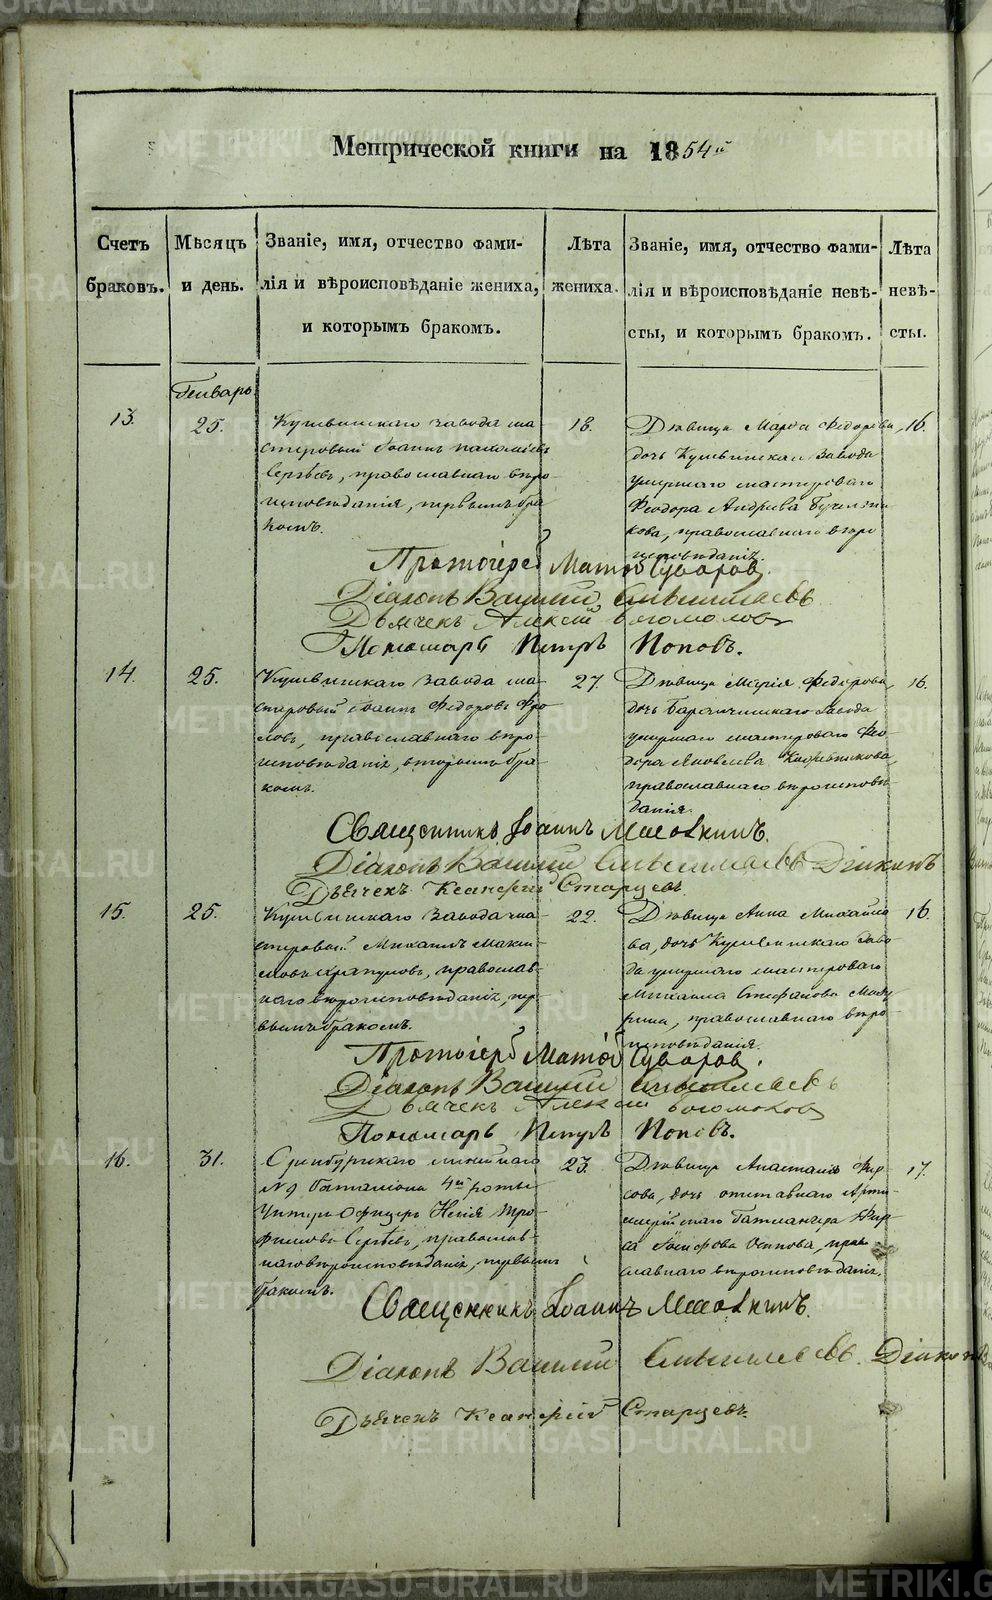 METRIKI.GASO-URAL.RU
Метрической книги на 1854й
Счетъ браковъ.
Мѣсяцъ и день.
Званіе, имя, отчество фами-
лія и вѣроисповѣданіе жениха,
и которымъ бракомъ.
Лѣта
жениха.
Званіе, имя, отчество фами-
лія и вѣроисповѣданіе невѣ-
сты, и которымъ бракомъ.
Лѣта
невѣ-
сты.
Генварь
13.
25.
Кушвинскаго завода ма
стеровый Іоаннъ
Сергѣевъ, православнаго вѣро
исповѣданія, первымъ бра
комъ.
18.
Дѣвица Марѳа Федорова,
дочь Кушвинскаго завода
умершаго мастероваго
Феодора Андреева
кова, православнаго вѣро
исповѣданія.
16.
Протоіерей Матѳей Суворов
Діаконъ Василий
Дьячекъ Алексій Богомолов
Пономарь Петръ Поповъ.
14.
25.
Кушвинскаго завода ма-
стеровый Іоаннъ Федоровъ Фро
ловъ, православнаго вѣро
исповѣданія, вторымъ бра-
комъ.
27.
Дѣвица Марія Федорова,
дочь Баранчинскаго завода
умершаго мастероваго Фео
дора Яковлева
православнаго вѣроисповѣ
данія.
16.
Священникъ Іоаннъ
Діаконъ Василий
Дьячекъ Старцевъ
15.
25.
Кушвинскаго завода ма-
стеровый Михаилъ Макси-
мовъ Храпуновъ, православ-
наго вѣроисповѣданія, пер
вымъ бракомъ.
22.
Дѣвица Анна Михайло
ва, дочь Кушвинскаго заво-
да умершаго мастероваго
Михаила Стефанова
православнаго вѣро
исповѣданія.
16.
Протоіерей Матѳей Суворов.
Діаконъ Василий
Дьячекъ Алексій Богомолов
Пономарь Петръ Поповъ.
16.
31.
Оренбургскаго линейнаго
№ 9 баталіона 4й роты
Унтеръ Офицеръ Тро
фимовъ Сергѣевъ, православ-
наго вѣроисповѣданія, первымъ
бракомъ.
23.
Дѣвица Анастасія Фир
сова, дочь отставнаго Арти
лерійскаго Фир
са Іосифова Осипова, право
славнаго вѣроисповѣданія.
17.
Священникъ Іоаннъ
Діаконъ Василий
Дьячекъ Старцевъ.